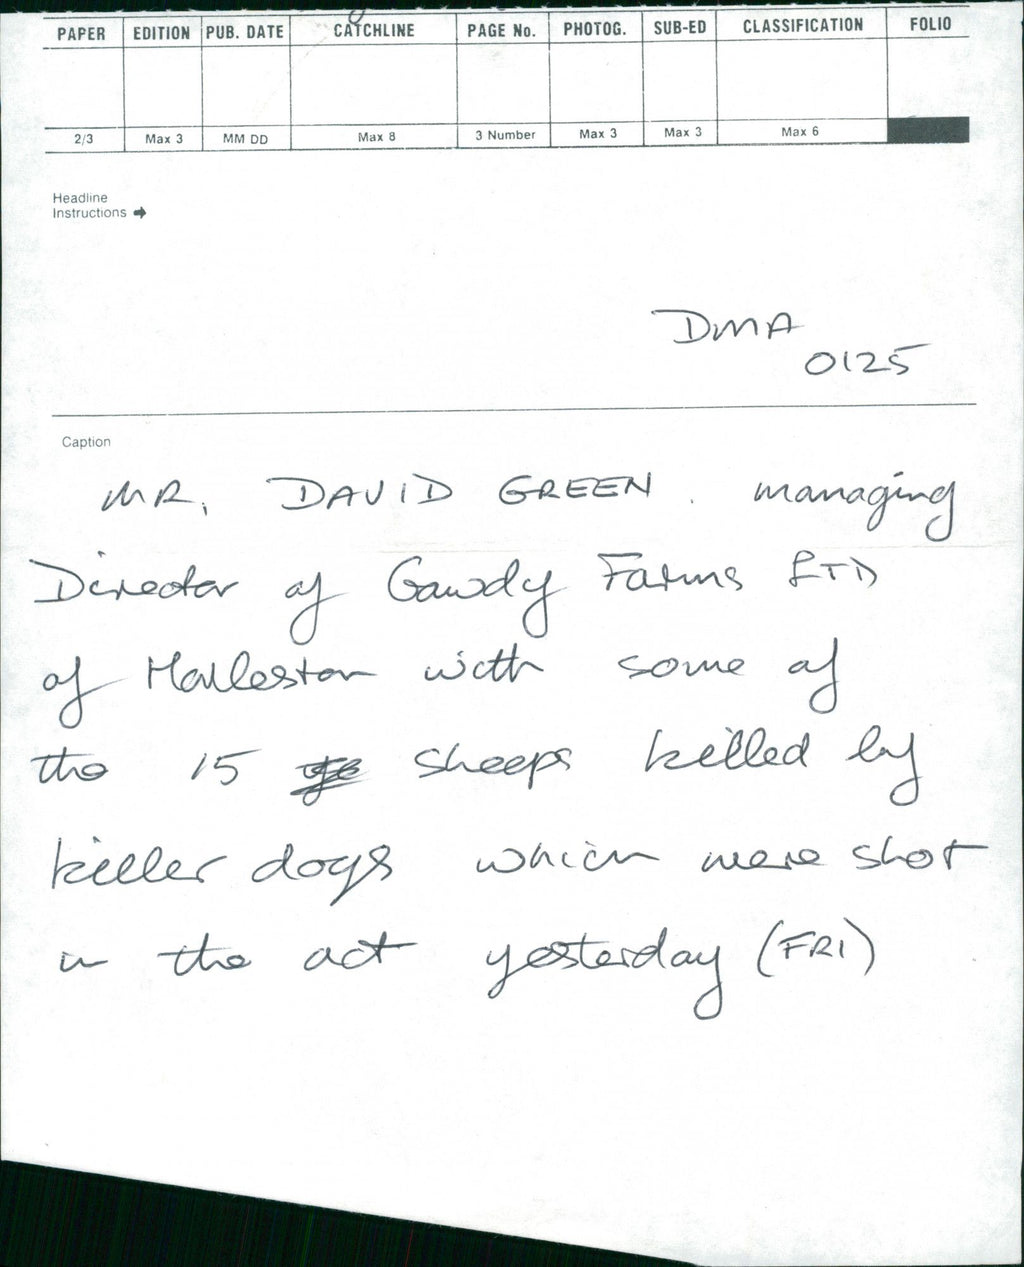 PAPER EDITION PUB. DATE CATCHLINE PAGE No. PHOTOG. SUB-ED CLASSIFICATION FOLIO
2/3 Max 3 MM DD Max 8 3 Number Max 3 Max 3 Max 6
Headline
Instructions
DMA
0125
Caption
MR. DAVID GREEN. managing
Director of Gawdy Farms LTD
of Harleston with some of
the 15 sheeps killed by
killer dogs which were shot
in the act yesterday (FRI)